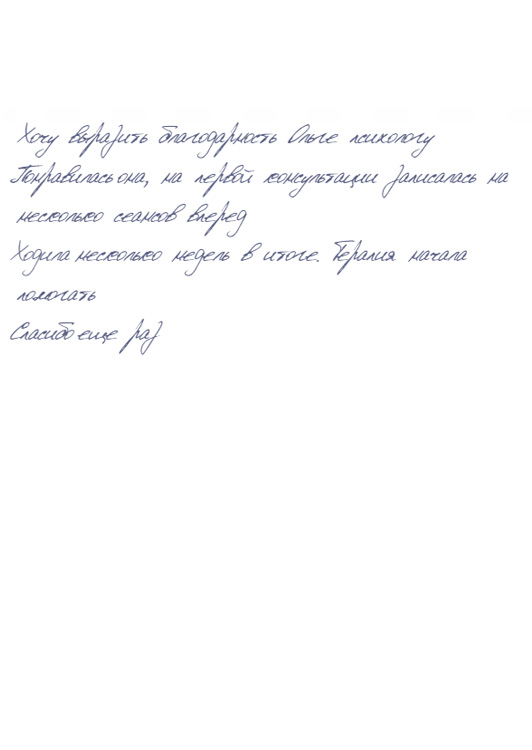 Хочу выразить благодарность Ольге психологу
Понравилась она, на первой консультации записалась на
несколько сеансов вперед
Ходила несколько недель в итоге. Терапия начала
помогать
Спасибо еще раз